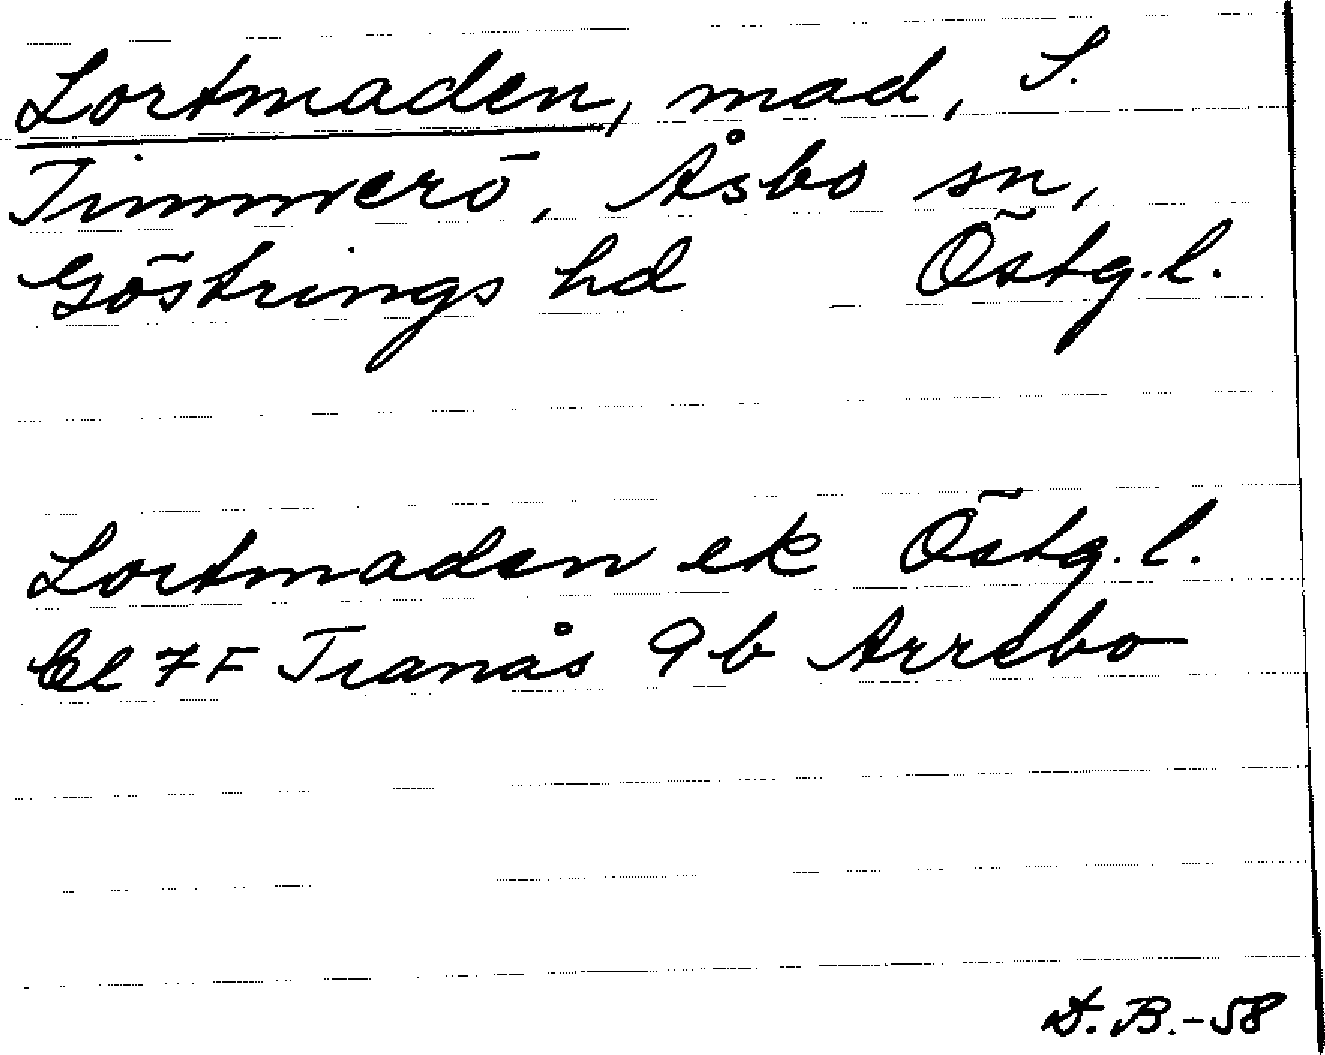 Lortmaden, mad, S.
Timmerö, Åsbo sn,
Göstrings hd Östg.l.
Lortmaden ek Östg.l.
El 7F Tranås 9b Arrebo
D.B.-58